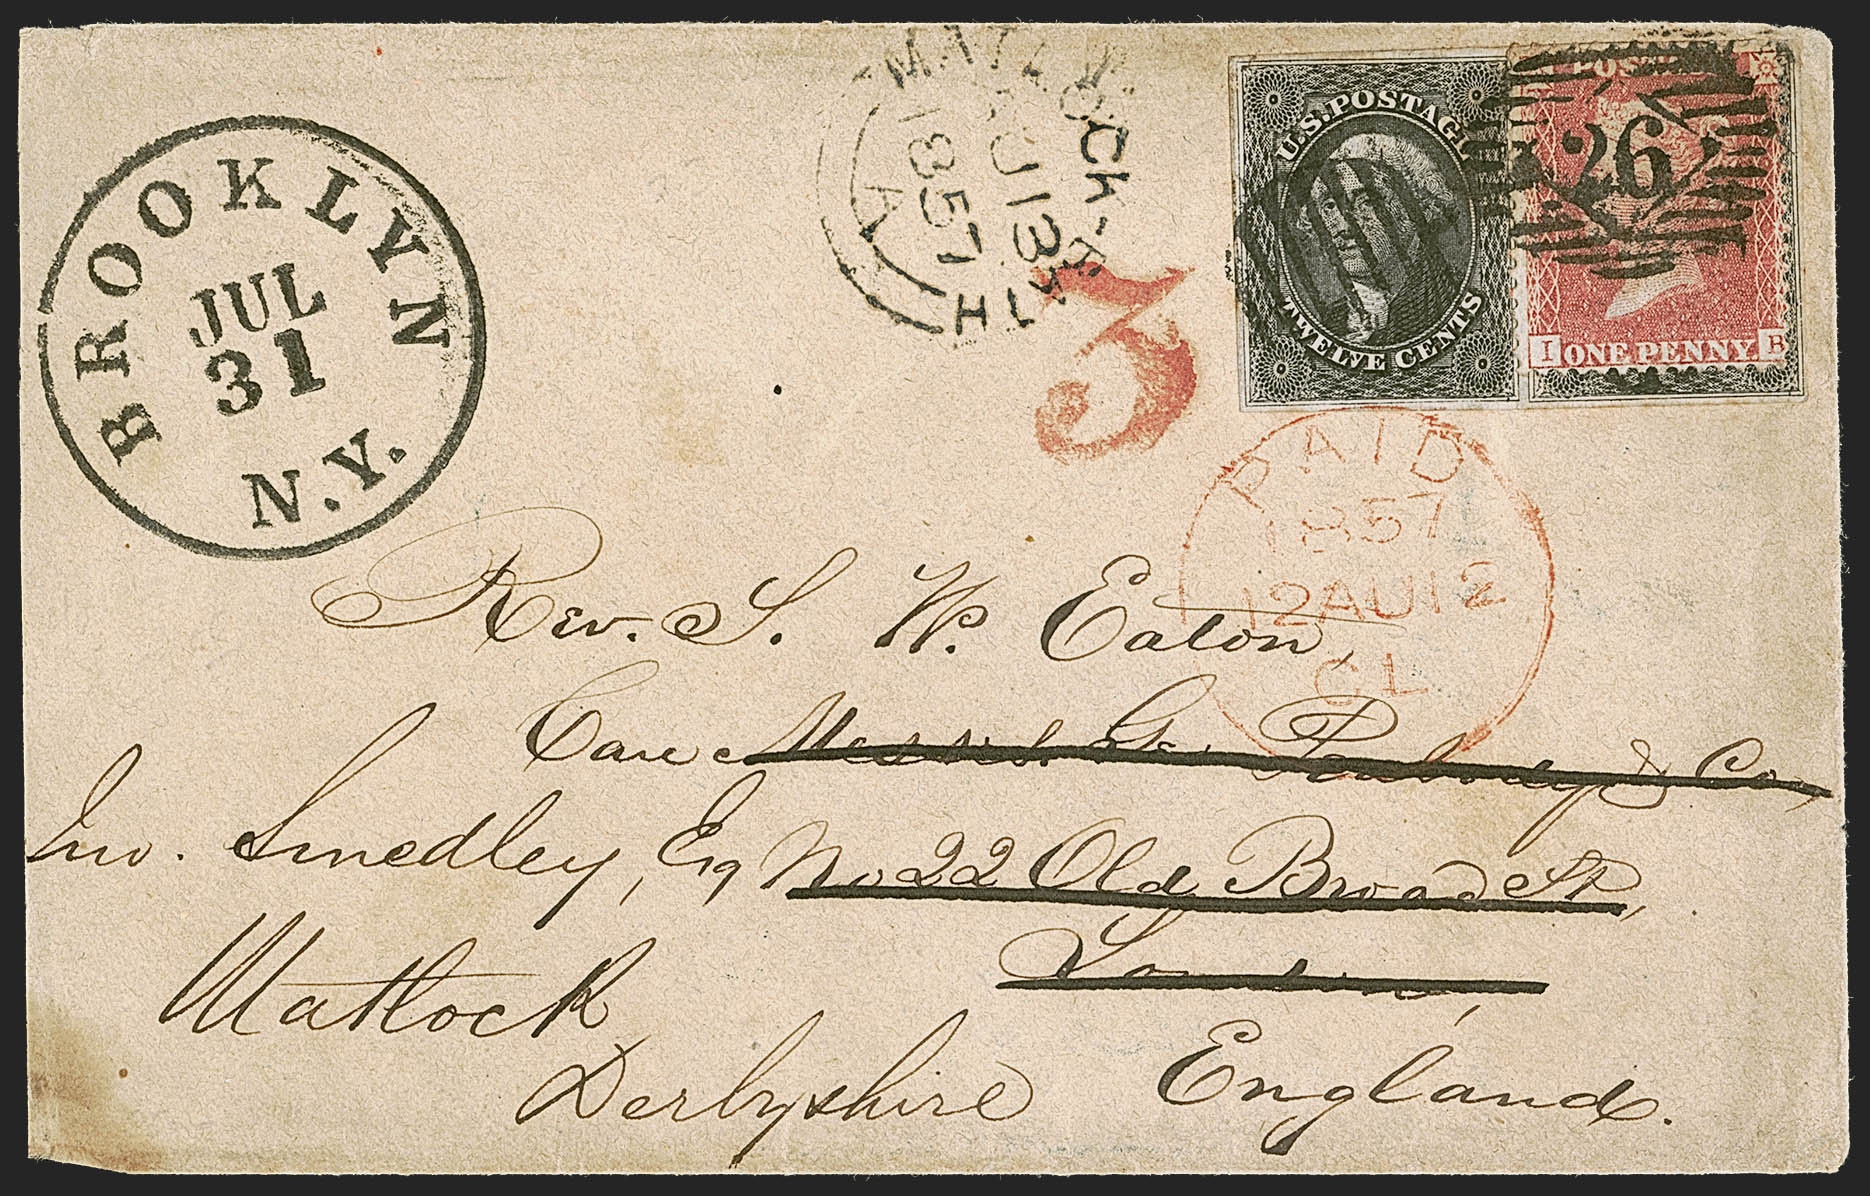 BROOKLYN
JUL
31
N.Y.
MATLOCK-BATH
AU 13
1857
A
3
U.S. POSTAGE
TWELVE CENTS
POSTAGE
26
I ONE PENNY. B
PAID
1857
12 AU 12
CL
Rev. S. W. Eaton,
Care Messrs. Geo. Peabody & Co,
No 22 Old Broad St,
London,
Jno. Smedley, Esq
Matlock
Derbyshire
England.